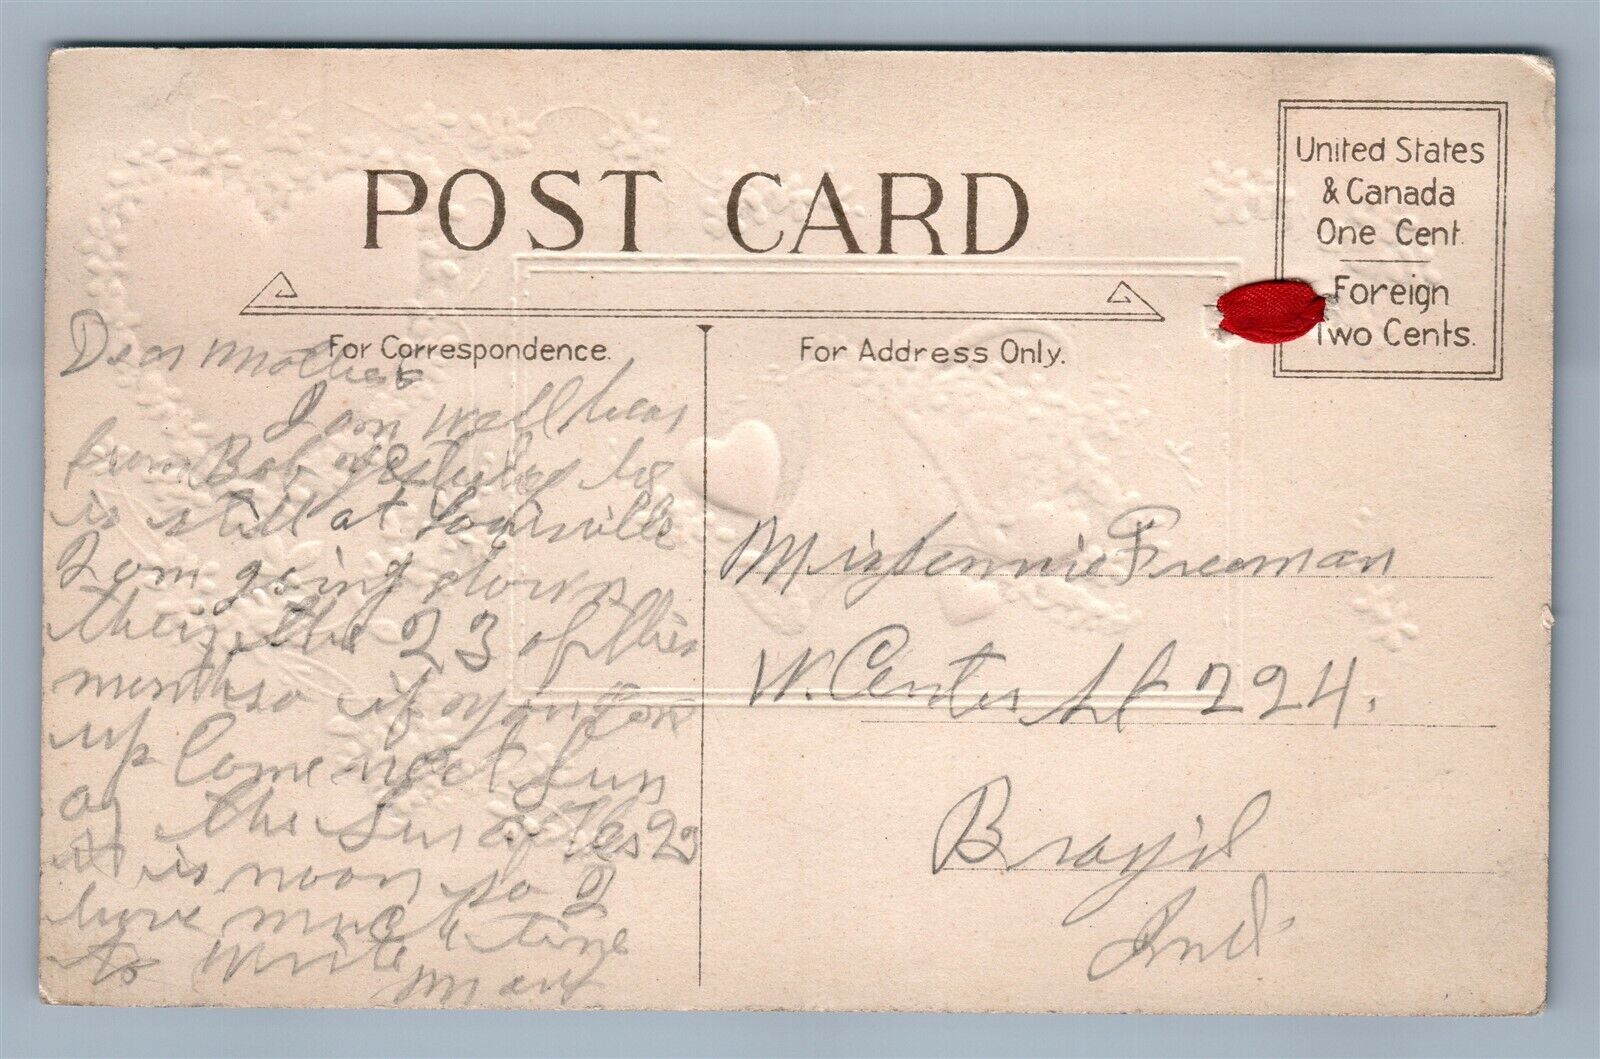 POST CARD
United States
& Canada
One Cent.
Foreign
Two Cents.
For Correspondence.
For Address Only.
Dear Mother
I am well hear
from Bob yesterday he
is still at Louisville
I am going down
the 23 of this
month so if you
up Come next Sun
as the Sun of the 23
it is noon so I
have much time
to write
Mary
Freeman
W. Center St 224.
Brazil
Ind.